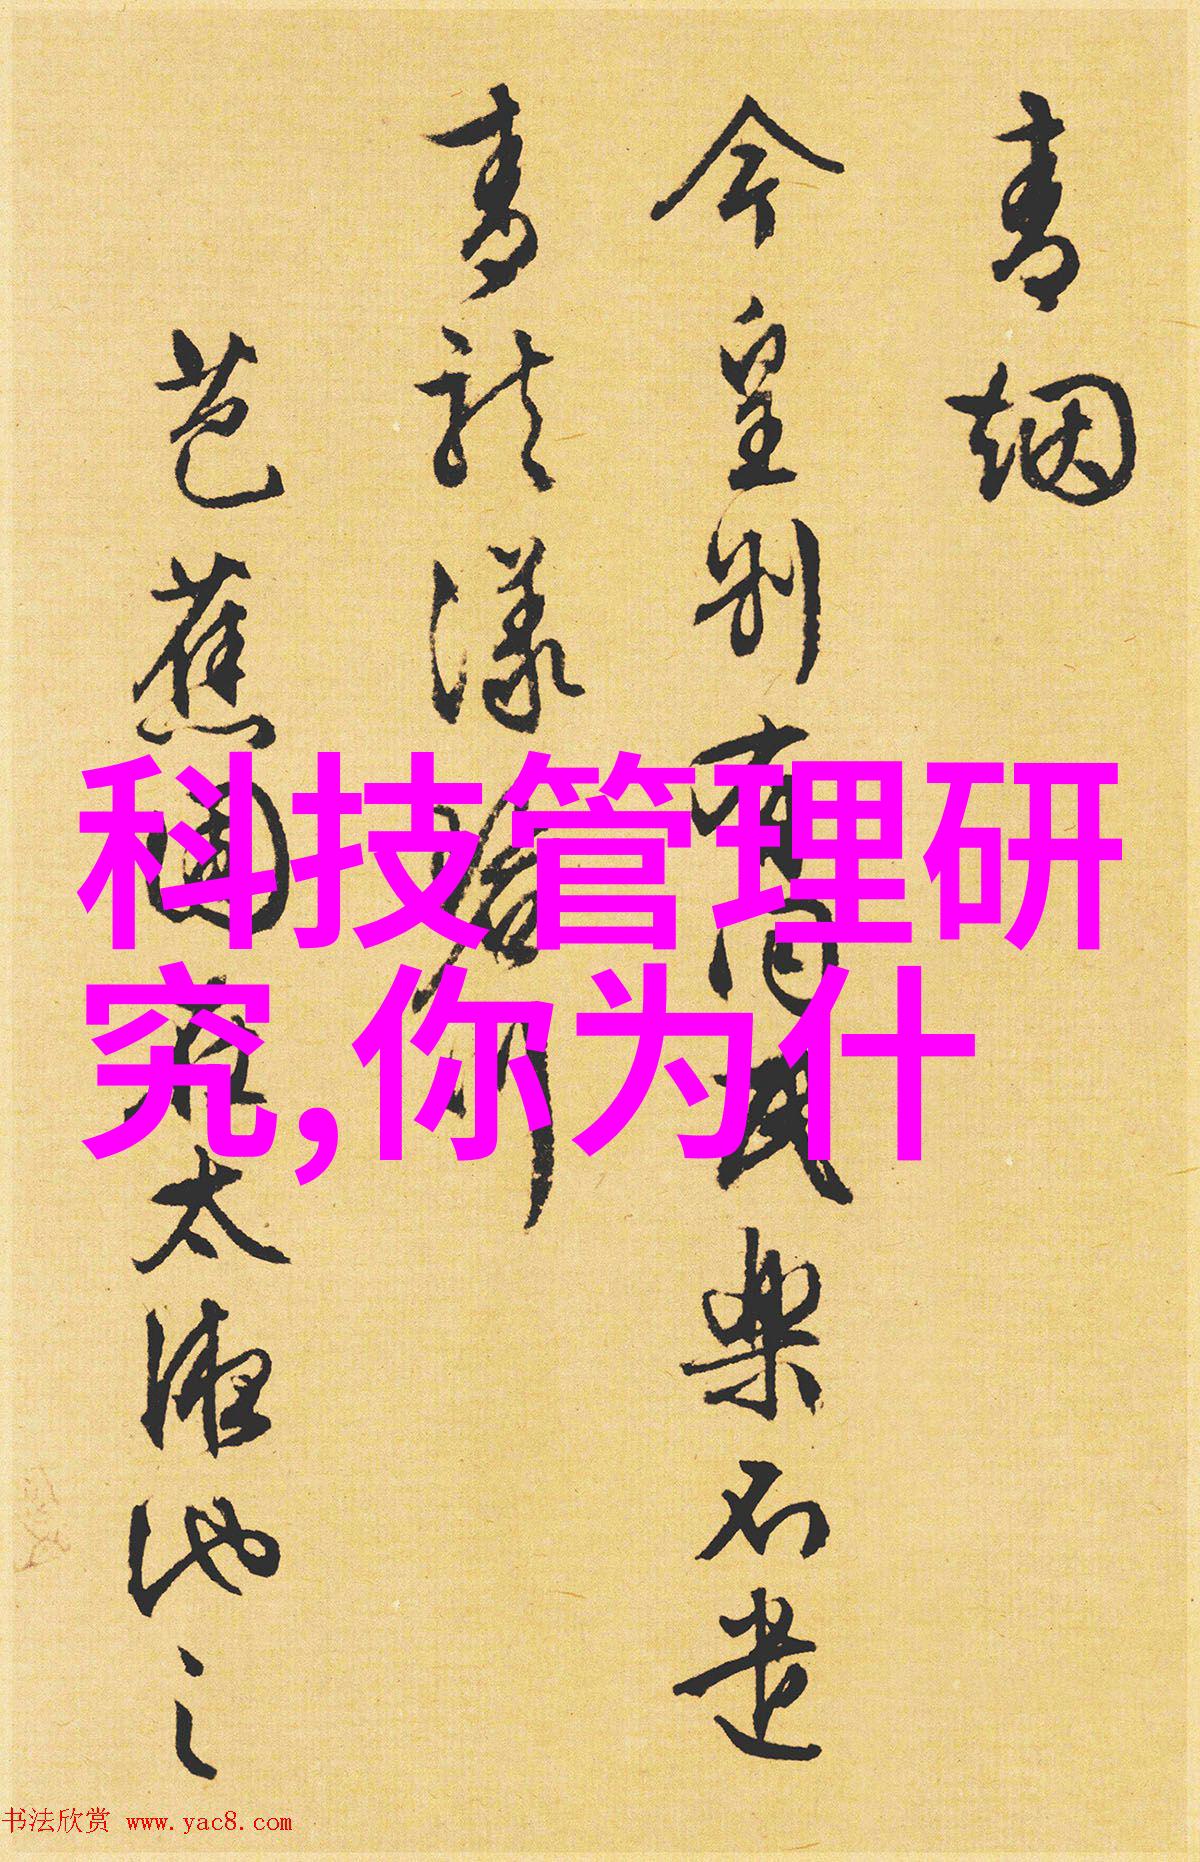 青烟
今皇别有同民乐不遣
青龙漾
芭蕉园在太液池之
科技管理研
究,你为什
书法欣赏 www.yac8.com